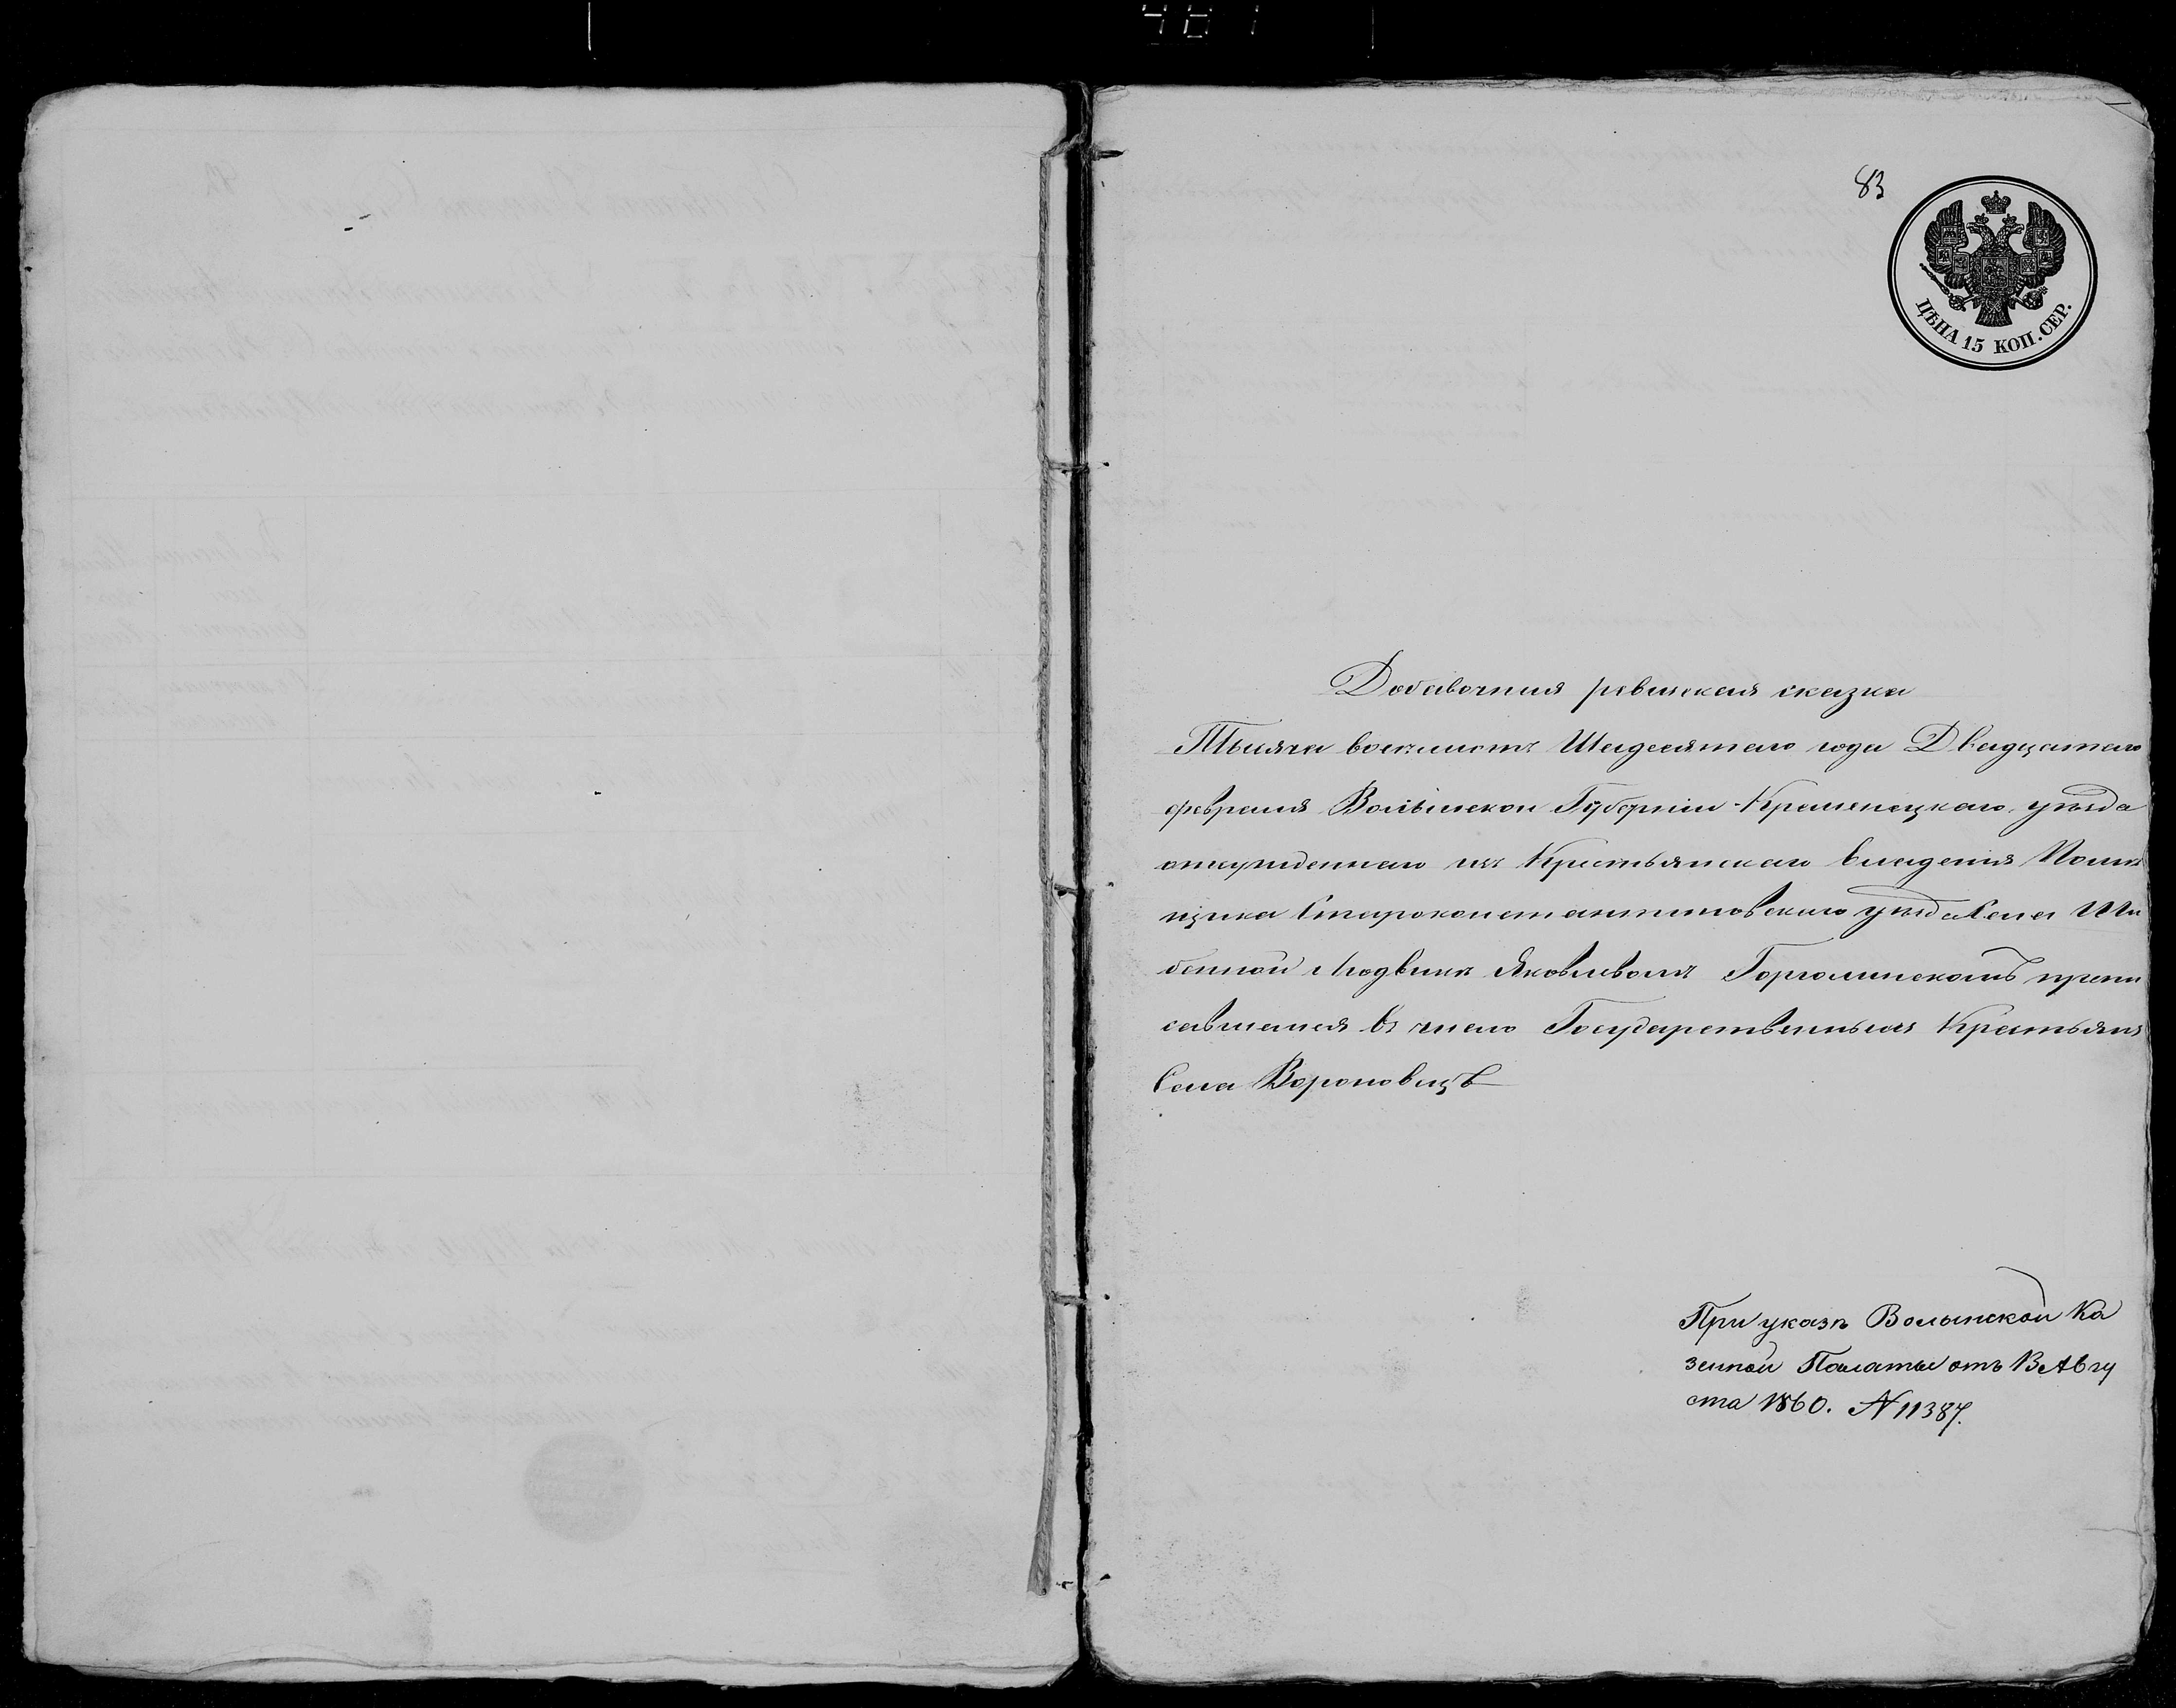 481
83
ЦѢНА 15 КОП. СЕР.
Добавочная ревизская сказка
Тысяча восемьсотъ Шесдесятаго года Двадцатаго
февраля Волынской Губерніи Кременецкаго уѣзда
отсужденнаго изъ Крестьянскаго владенія Помѣ
щика Староконстантиновскаго уѣзда Села
Людвика Яковлевомъ припи
савшагося въ число Государственныхъ Крестьянъ
Села Вороновецъ
При указѣ Волынской Ка
зенной Палаты отъ 13 Авгу
ста 1860. N 11387.